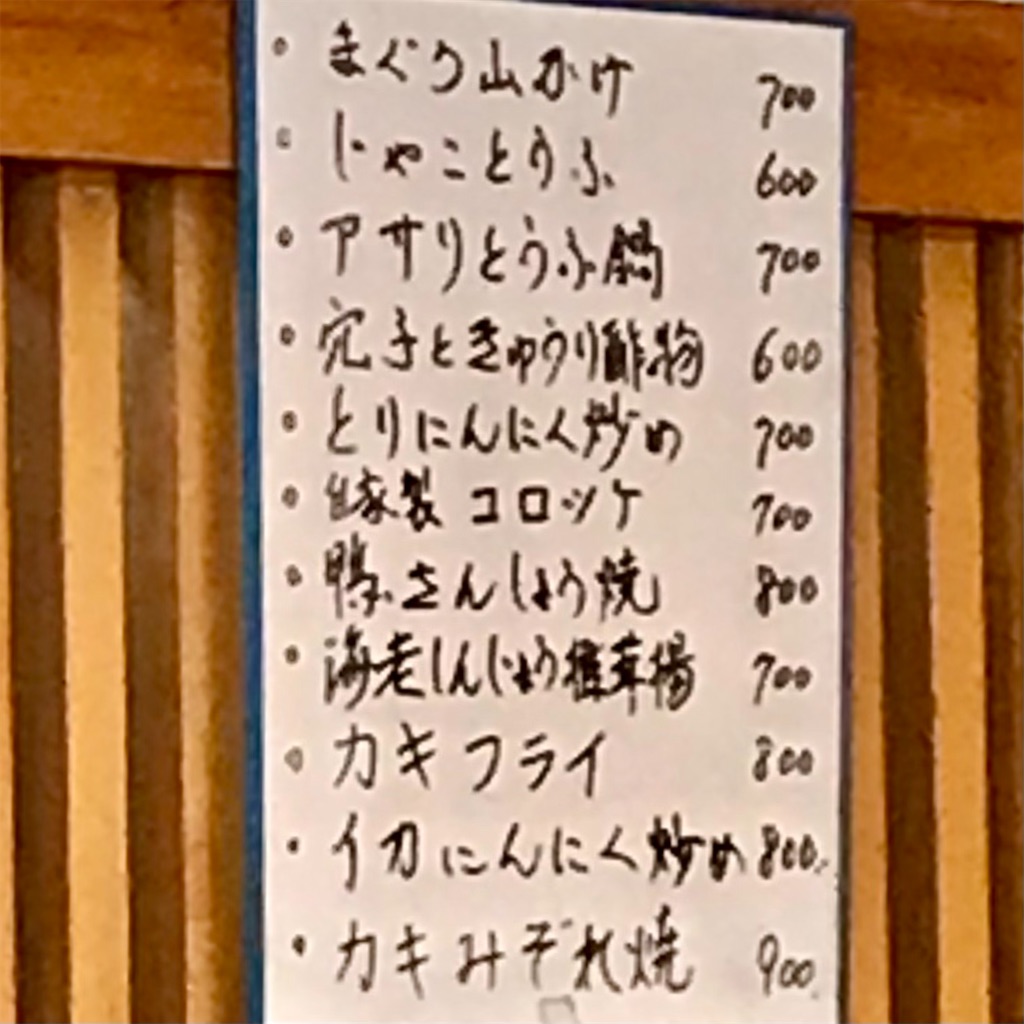 。まぐろ山かけ 700
。じゃことうふ 600
。アサリとうふ鍋 700
。穴子ときゅうり酢物 600
。とりにんにく炒め 700
。自家製 コロッケ 700
。鴨さんしょう焼 800
。海老しんじょう椎茸揚 700
。カキフライ 800
・イカにんにく炒め 800.
・カキみぞれ焼 900.